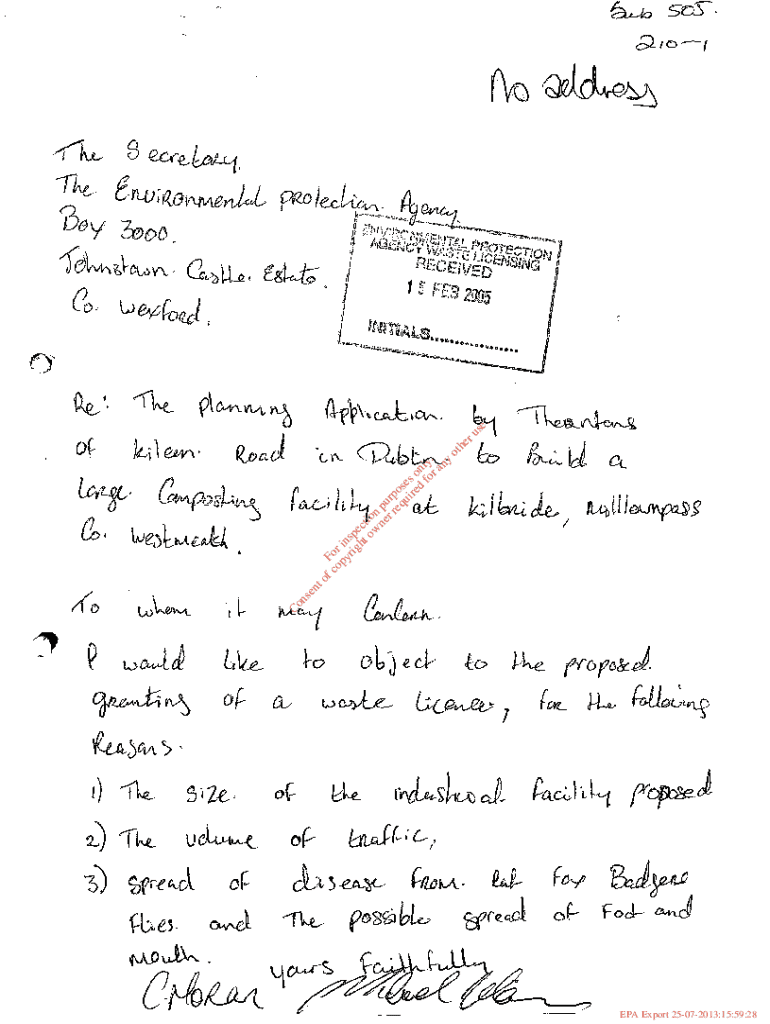 Sub 505.
210-1
No address
The Secretary.
The Environmental protection Agency
Box 3000.
Johnstown Castle Estate.
Co. Wexford.
ENVIRONMENTAL PROTECTION
AGENCY WASTE LICENSING
RECEIVED
15 FEB 2005
INITIALS..................
Re: The planning Application by Thorntons
of kileen Road in Dublin to Build a
large Composting facility at kilbride, Mulllownpass
Co. Westmeath.
For inspection purposes only.
Consent of copyright owner required for any other use.
To whom it may Concern.
I would like to object to the proposed
granting of a waste licence, for the following
Reasons.
1) The size of the industrial facility proposed
2) The volume of traffic,
3) spread of disease from Rat fox Badgers
flies and The possible spread of Foot and
Mouth.
yours faithfully
C Moran Michael
EPA Export 25-07-2013:15:59:28